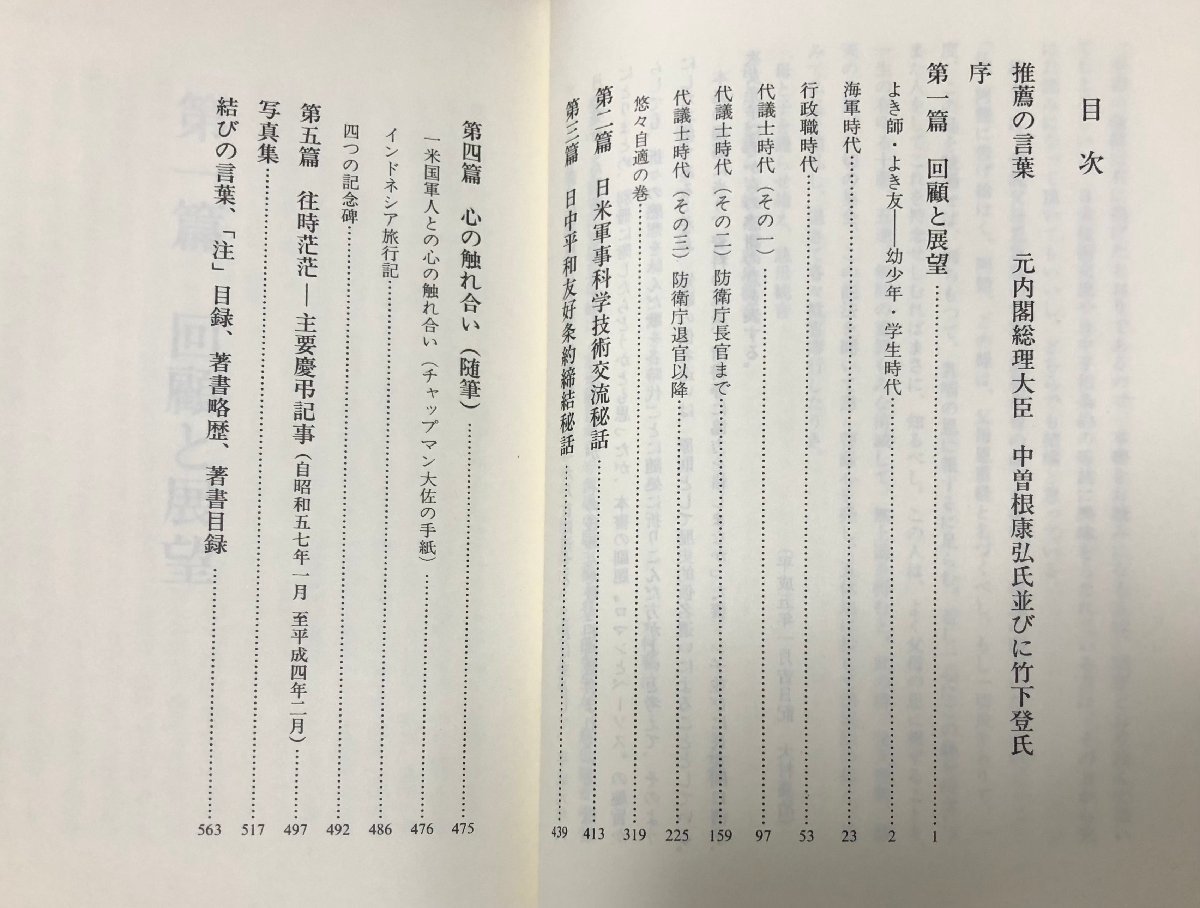 目次
推薦の言葉　元内閣総理大臣　中曽根康弘氏並びに竹下登氏
序
第一篇　回顧と展望……1
よき師・よき友――幼少年・学生時代……2
海軍時代……23
行政職時代……53
代議士時代（その一）……97
代議士時代（その二）防衛庁長官まで……159
代議士時代（その三）防衛庁退官以降……225
悠々自適の巻……319
第二篇　日米軍事科学技術交流秘話……413
第三篇　日中平和友好条約締結秘話……439
第四篇　心の触れ合い（随筆）……475
一米国軍人との心の触れ合い（チャップマン大佐の手紙）……476
インドネシア旅行記……486
四つの記念碑……492
第五篇　往時茫茫―主要慶弔記事（自昭和五七年一月　至平成四年二月）……497
写真集……517
結びの言葉、「注」目録、著書略歴、著書目録……563